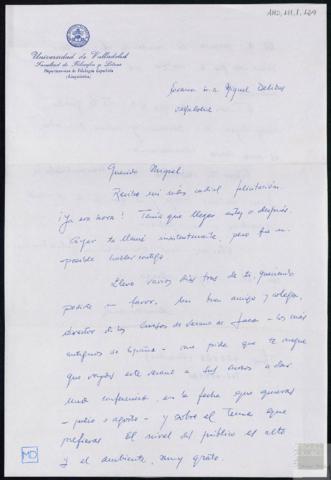 AMD, 111, 1, 129
Universidad de Valladolid
Facultad de Filosofía y Letras
Departamento de Filología Española
(Lingüística)
Sr. D. Miguel Delibes
Valladolid
Querido Miguel:
Recibe mi más cordial felicitación.
¡Ya era hora! Tenía que llegar antes o después.
Ayer te llamé insistentemente, pero fue im-
posible hablar contigo.
Llevo varios días tras de ti, queriendo
pedirte un favor. Un buen amigo y colega,
director de los Cursos de verano de Jaca – los más
antiguos de España – me pide que te ruegue
que vengas este verano a sus cursos a dar
una conferencia, en la fecha que quieras
– julio o agosto – y sobre el tema que
prefieras. El nivel del público es alto
y el ambiente, muy grato.
MD